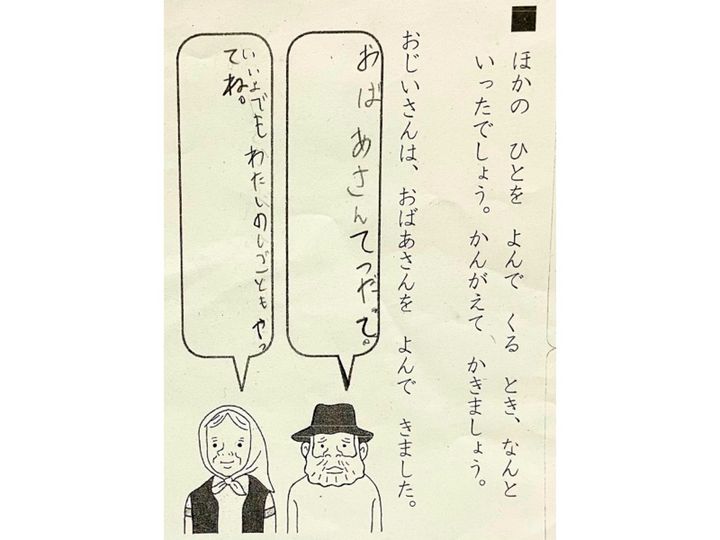 ほかの ひとを よんで くる とき、なんと
いったでしょう。かんがえて かきましょう。
おじいさんは、おばあさんを よんで きました。
おばあさんてつだって。
いいよでもわたしのしごともやっ
てね。